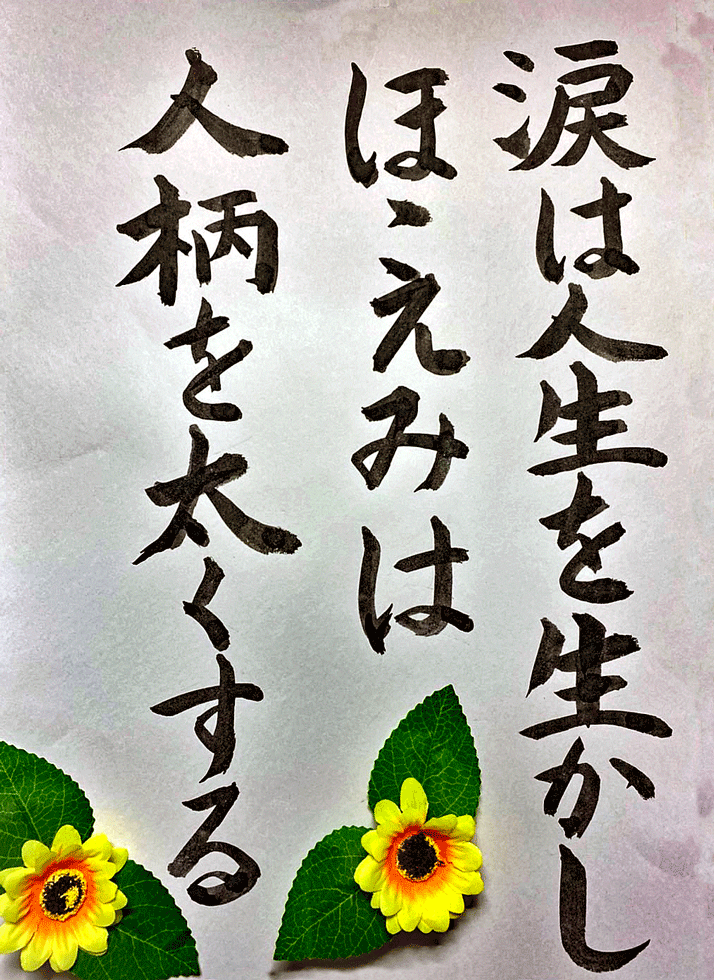 涙は人生を生かし
ほゝえみは
人柄を太くする